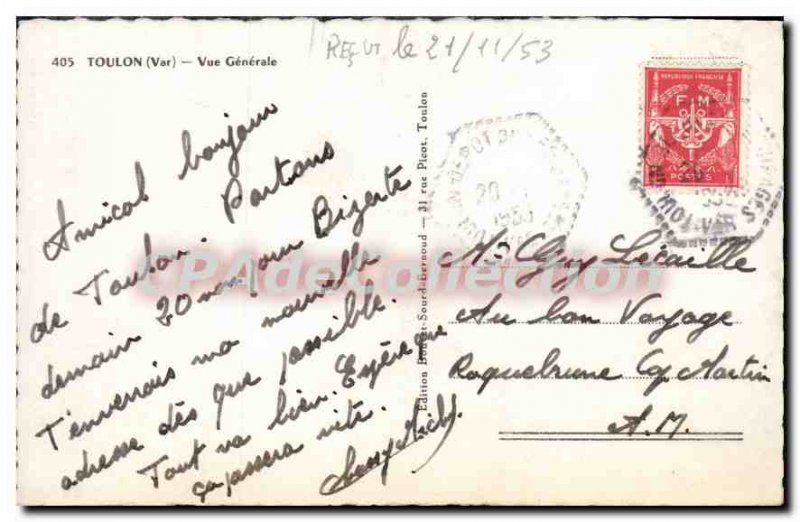 Reçut le 21/11/53
405 TOULON (Var) — Vue Générale
Amical bonjour
de Toulon. Partons
demain 20 nov. pour Bizerte
T'enverrais ma nouvelle
adresse dès que possible.
Tout va bien. Espère que
ça passera vite.
Edition Sourd-Bernoud — 31 rue Picot, Toulon
REPUBLIQUE FRANÇAISE
F M
POSTES
20
Mr Guy Lécaille
Au bon Voyage
Roquebrune Cap Martin
A.M.
CPAdeCollection